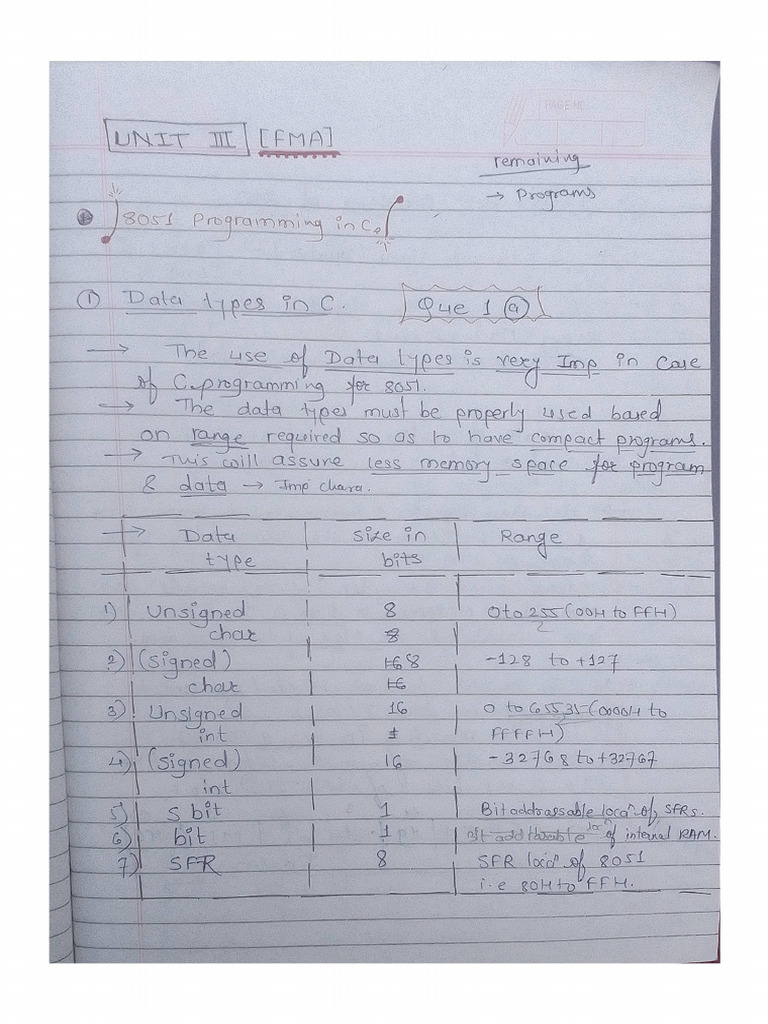 PAGE NO
UNIT III [FMA]
remaining
→ Programs
8051 Programming in C.
① Data types in C. Que 1 ⓐ
→ The use of Data types is very Imp in Case
of C programming for 8051.
→ The data types must be properly used based
on range required so as to have compact programs.
→ This will assure less memory space for program
& data → Imp chara.
→ Data type | Size in bits | Range
1) Unsigned char | 8 | 0 to 255 (00H to FFH)
2) (signed) char | 8 | -128 to +127
3) Unsigned int | 16 | 0 to 65535 (0000H to FFFFH)
4) (signed) int | 16 | -32768 to +32767
5) S bit | 1 | Bit addrassable locaⁿ of SFRs.
6) bit | 1 | locⁿ of internal RAM.
7) SFR | 8 | SFR locaⁿ of 8051
i.e 80H to FFH.